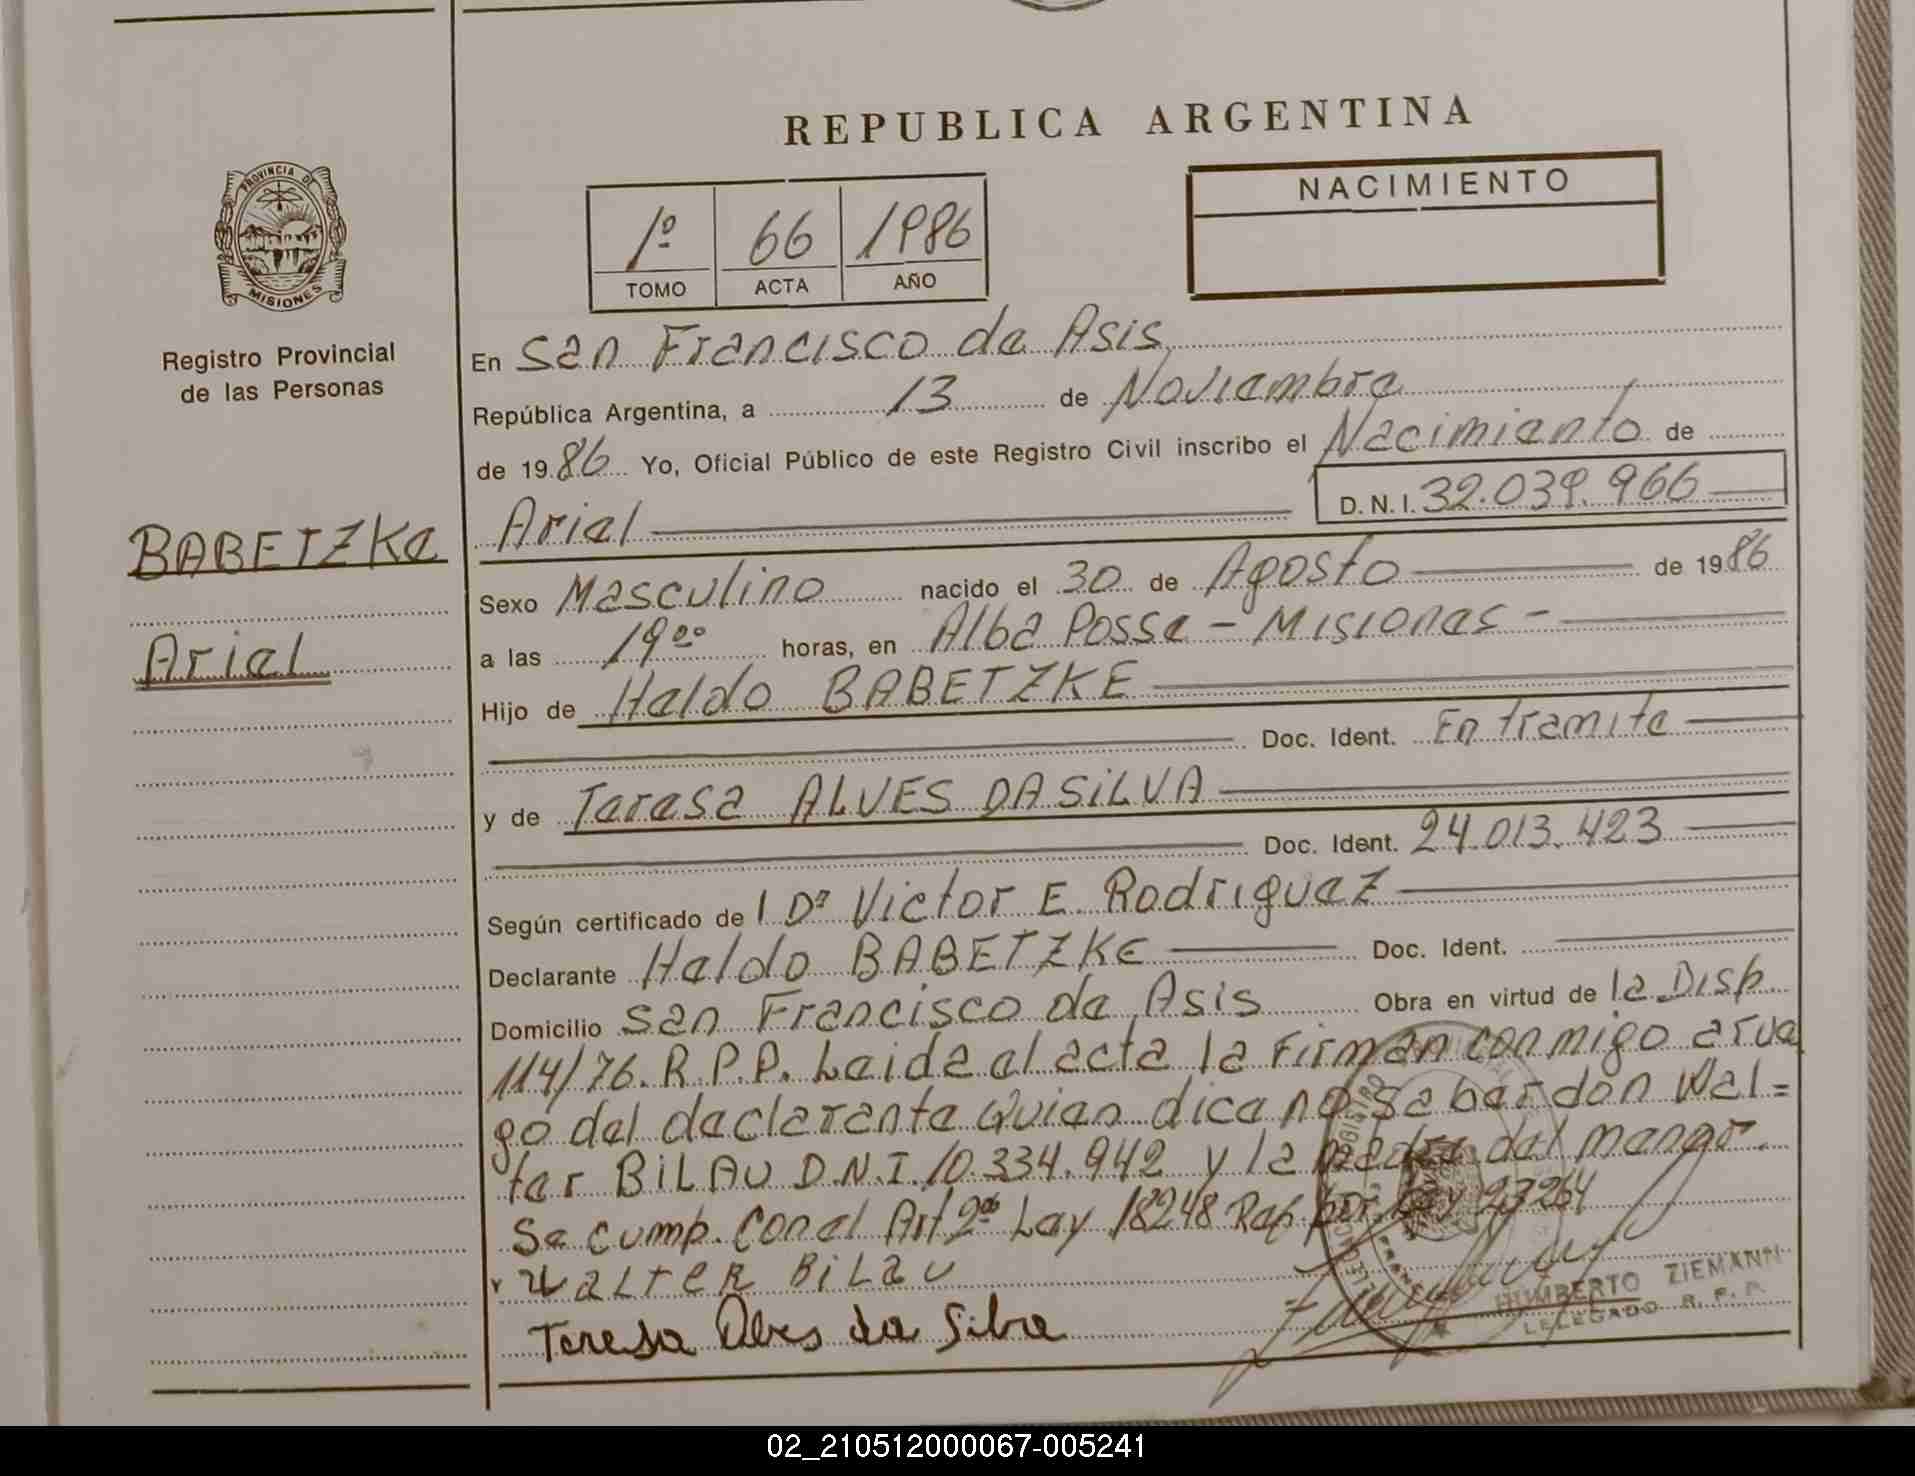 REPUBLICA ARGENTINA
PROVINCIA DE
MISIONES
Registro Provincial
de las Personas
BABETZKE
Ariel
1º 66 1986
TOMO ACTA AÑO
NACIMIENTO
En San Francisco de Asis
República Argentina, a 13 de Noviembre
de 1986 Yo, Oficial Público de este Registro Civil inscribo el Nacimiento de
Ariel D.N.I. 32.039.966
Sexo Masculino nacido el 30 de Agosto de 1986
a las 19 00 horas, en Alba Posse - Misiones -
Hijo de Heldo BABETZKE
Doc. Ident. En tramite
y de Teresa ALVES DA SILVA
Doc. Ident. 24.013.423
Según certificado de l Dr Victor E. Rodriguez
Declarante Heldo BABETZKE Doc. Ident.
Domicilio San Francisco de Asis Obra en virtud de la Disp
114/76. R.P.P. Leida el acta la Firman conmigo a rue
go del declarante Quien dice no saber don Wal=
ter BILAU D.N.I. 10.334.942 y la madre del menor.
Se cump. Con el Art 2do Ley 18248 Rep por Ley 23264
WALTER BILAU
Teresa Alves da Silva
HUMBERTO ZIEMANN
DELEGADO R. P. P.
02_210512000067-005241